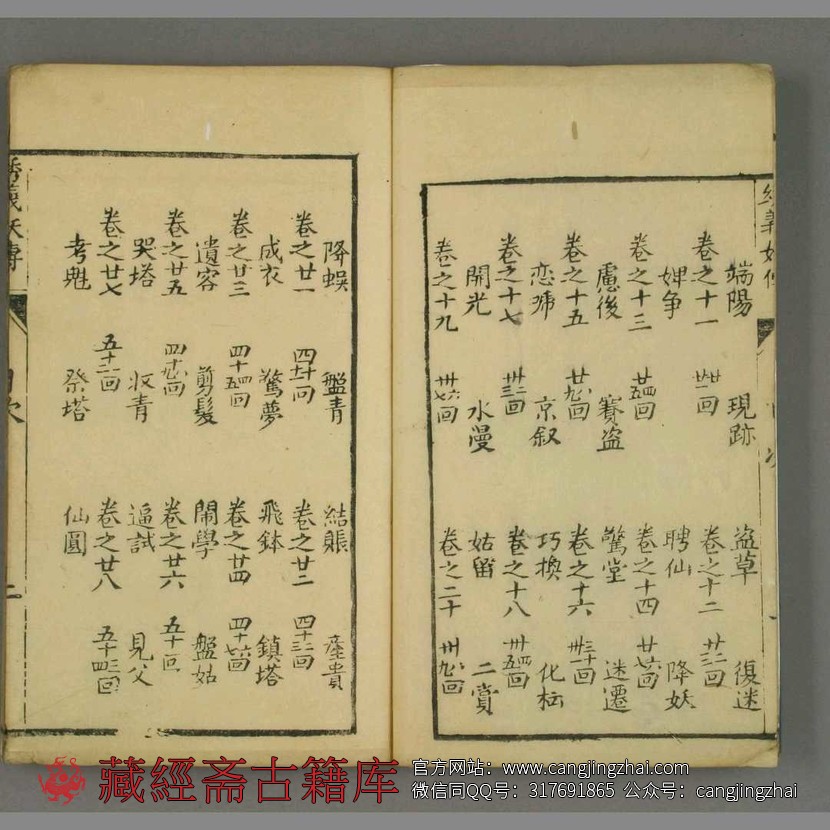 義妖傳
端陽 現跡 盗草 復迷
卷之十一 廿廿一回 卷之十二 廿二三回
婢争 聘仙 降妖
卷之十三 廿四五回 卷之十四 廿六七回
慮後 賽盗 驚堂 迷遷
卷之十五 廿八九回 卷之十六 三十卅一回
恋 京叙 巧換 化枟
卷之十七 卅二三回 卷之十八 卅四五回
開光 水漫 姑留 二賞
卷之十九 卅六七回 卷之二十 卅八九回
降蜈 盤青 結賬 產貴
卷之廿一 四十一回 卷之廿二 四十二三回
成衣 驚夢 飛鉢 鎮塔
卷之廿三 四十四五回 卷之廿四 四十六七回
遺容 剪髮 鬧學 盤姑
卷之廿五 四十八九回 卷之廿六 五十回
哭塔 收青 逼試 見父
卷之廿七 五十一二回 卷之廿八 五十三四回
考魁 祭塔 仙圓
義妖傳
目次
二
藏經斋古籍库
官方网站：www.cangjingzhai.com
微信同QQ号：317691865 公众号：cangjingzhai